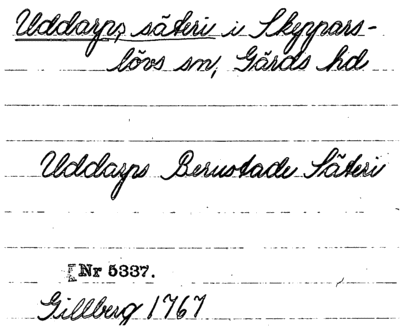 Uddarps säteri i Skeppars-
lövs sn, Gärds hd
Uddarps Berustade Säteri
Nr 5337.
Gillberg 1767